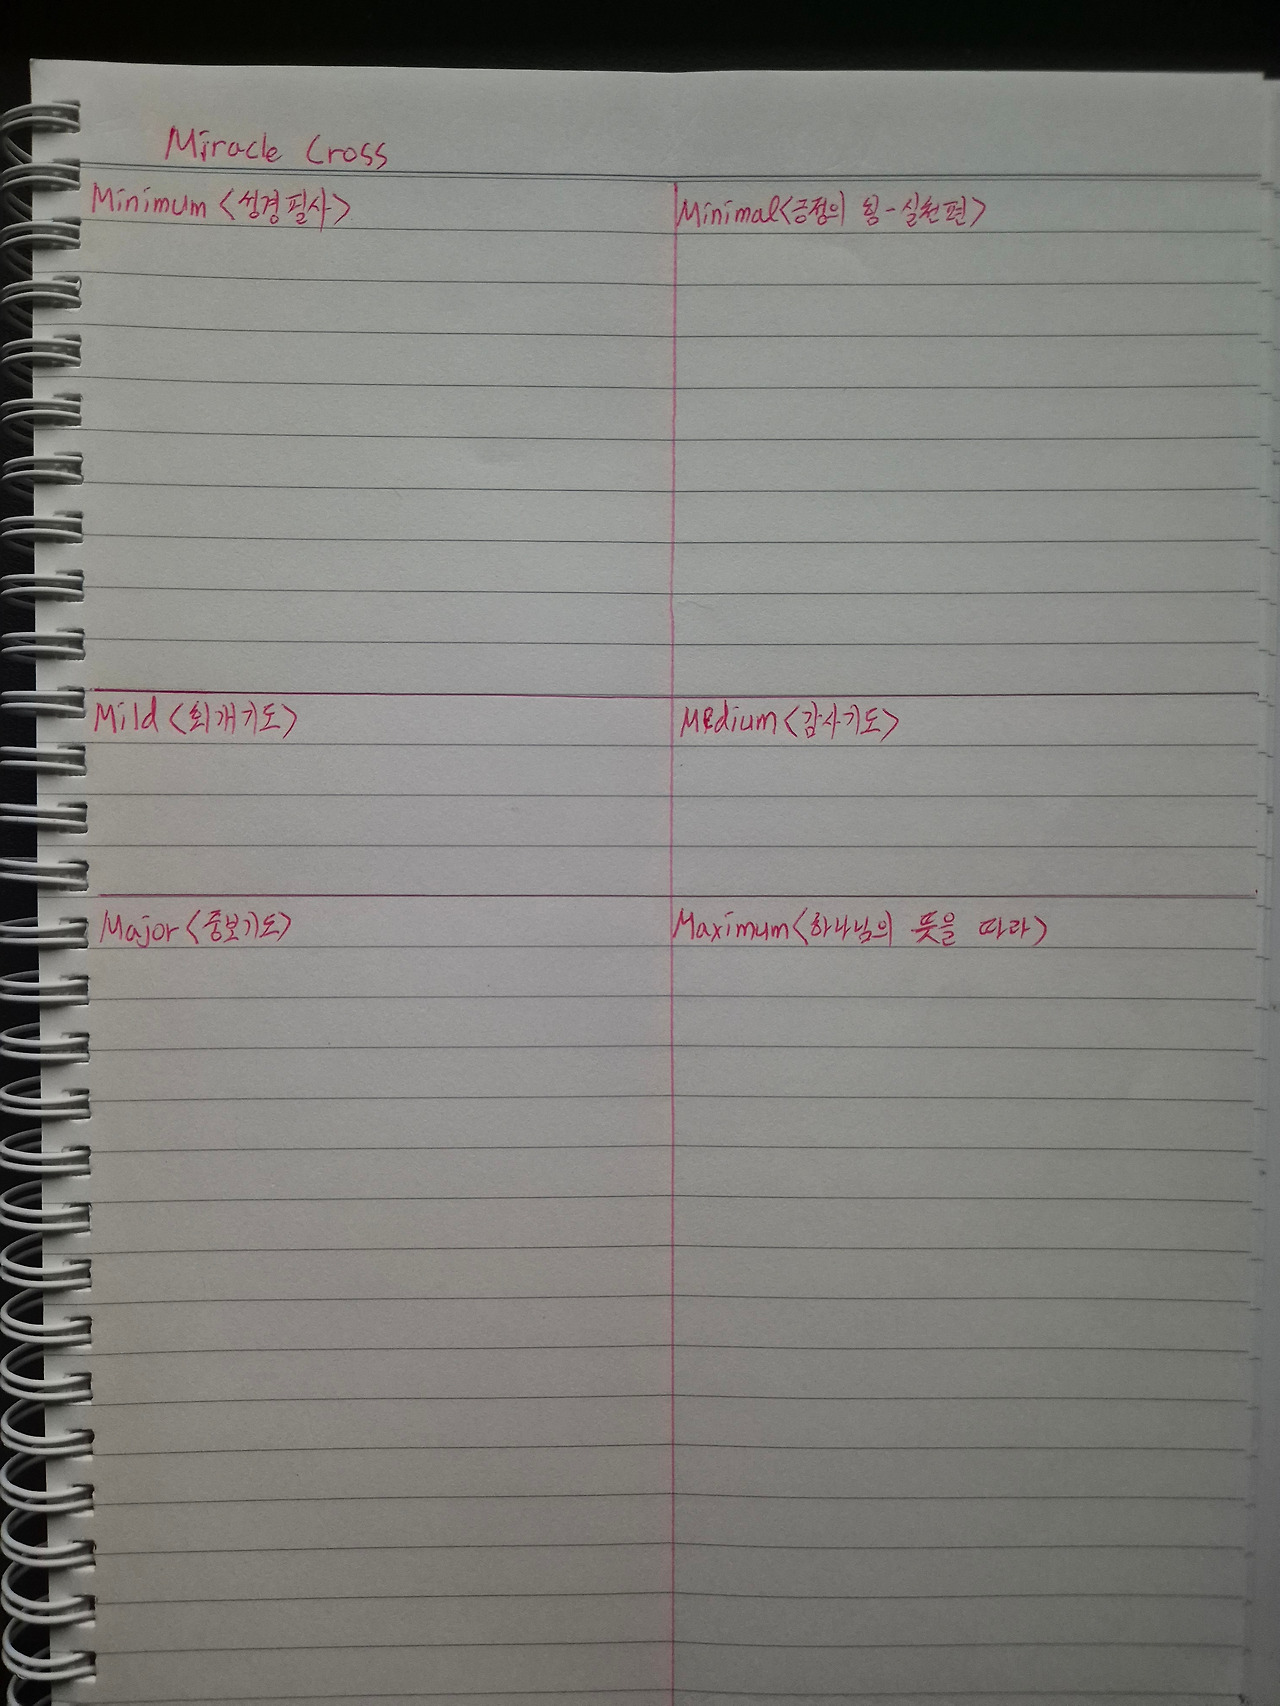 Miracle Cross
Minimum <성경필사>
Minimal<긍정의 힘-실천편>
Mild <회개기도>
Medium <감사기도>
Major <중보기도>
Maximum<하나님의 뜻을 따라>